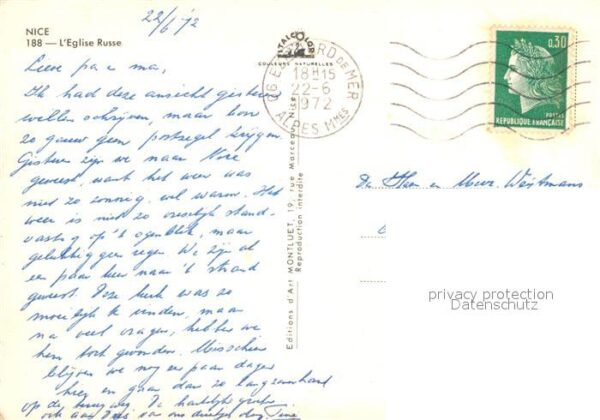 NICE
188 — L'Eglise Russe
22/6 '72
Lieve pa & ma,
Ik had deze ansicht gisteren
willen schrijven, maar kon
zo gauw geen postzegel krijgen.
Gisteren zijn we naar Nice
geweest, want het weer was
niet zo zonnig, wel warm. Het
weer is niet zo vreselijk stand-
vastig op 't ogenblik, maar
gelukkig geen regen. We zijn al
een paar keer naar 't strand
geweest. Deze kerk was zo
moeilijk te vinden, maar
na veel vragen, hebben we
hem toch gevonden. Misschien
blijven we nog een paar dagen
hier en gaan dan zo langzamerhand
op de terugweg. De hartelijke groeten
ook aan van ons
ITALCOLOR
COULEURS NATURELLES
Editions d'Art MONTLUET, 19, rue Marceau, Nice
Reproduction interdite
06 DE MER
18H15
22-6
1972
ALPES MMES
0,30
POSTES
REPUBLIQUE FRANÇAISE
De Heer en Mevr. Weijtmans
privacy protection
Datenschutz